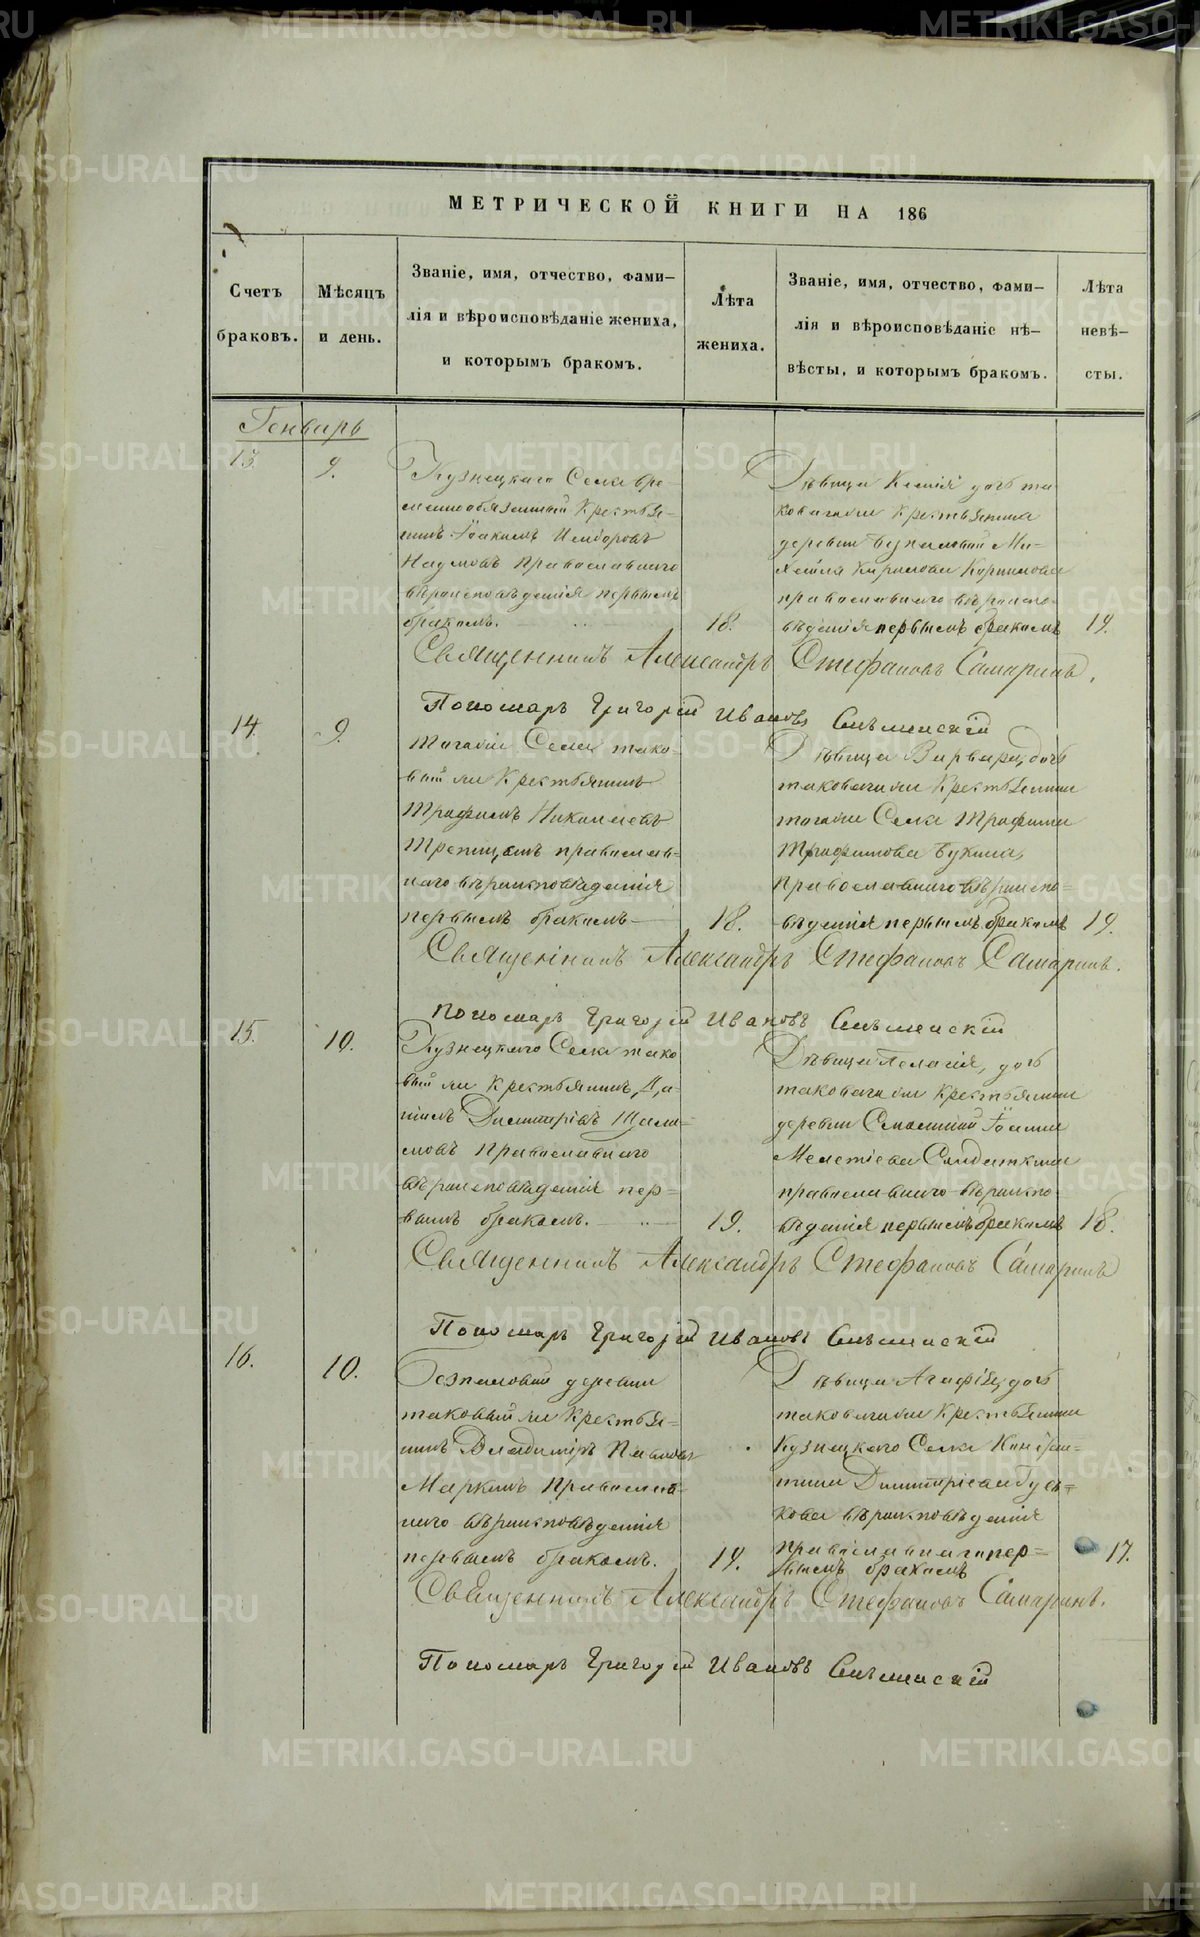 МЕТРИЧЕСКОЙ КНИГИ НА 186
Счетъ браковъ.
Мѣсяцъ и день.
Званіе, имя, отчество, фами-
лія и вѣроисповѣданіе жениха,
и которымъ бракомъ.
Лѣта жениха.
Званіе, имя, отчество, фами-
лія и вѣроисповѣданіе нѣ-
вѣсты, и которымъ бракомъ.
Лѣта невѣ-
сты.
Генварь
13. 9.
Кузнецкаго Села вре-
меннообязанный Крестья-
нинъ Іоакимъ
Наумовъ Православнаго
вѣроисповѣданія первымъ
бракомъ. 18.
Дѣвица Ксенія дочь та
коваго же Крестьянина
деревни Беспаловой Ми-
хаила Кирилова
православнаго вѣроиспо-
вѣданія первымъ бракомъ 19.
Священникъ Александръ Стефановъ Самаринъ,
Пономарь Григорій Ивановъ
14. 9.
Тогоже Села тако-
вый же Крестьянинъ
Трофимъ Николаевъ
православ-
наго вѣроисповѣданія
первымъ бракомъ 18.
Дѣвица Варвара, дочь
таковаго же Крестьянина
тогоже Села Трофима
Трофимова Букина,
Православнаго вѣроиспо-
вѣданія первымъ бракомъ 19.
Священникъ Александръ Стефановъ Самаринъ.
Пономарь Григорій Ивановъ
15. 10.
Кузнецкаго Села тако
вый же Крестьянинъ, Да-
ніилъ Димитріевъ Шала-
мовъ Православнаго
вѣроисповѣданія пер-
вымъ бракомъ. 19.
Дѣвица Пелагія, дочь
таковаго же Крестьянина
деревни Іоанна
Мелетіева
православнаго вѣроиспо-
вѣданія первымъ бракомъ 18.
Священникъ Александръ Стефановъ Самаринъ
Пономарь Григорій Ивановъ
16. 10.
Беспаловой деревни
таковый же Крестья-
нинъ Владиміръ Павловъ
Маркинъ Православ-
наго вѣроисповѣданія
первымъ бракомъ. 19.
Дѣвица Агафія, дочь
таковаго же Крестьянина
Кузнецкаго Села Констан-
тина Димитріева Гусь-
кова вѣроисповѣданія
православнаго пер-
вымъ бракомъ 17.
Священникъ Александръ Стефановъ Самаринъ.
Пономарь Григорій Ивановъ
METRIKI.GASO-URAL.RU